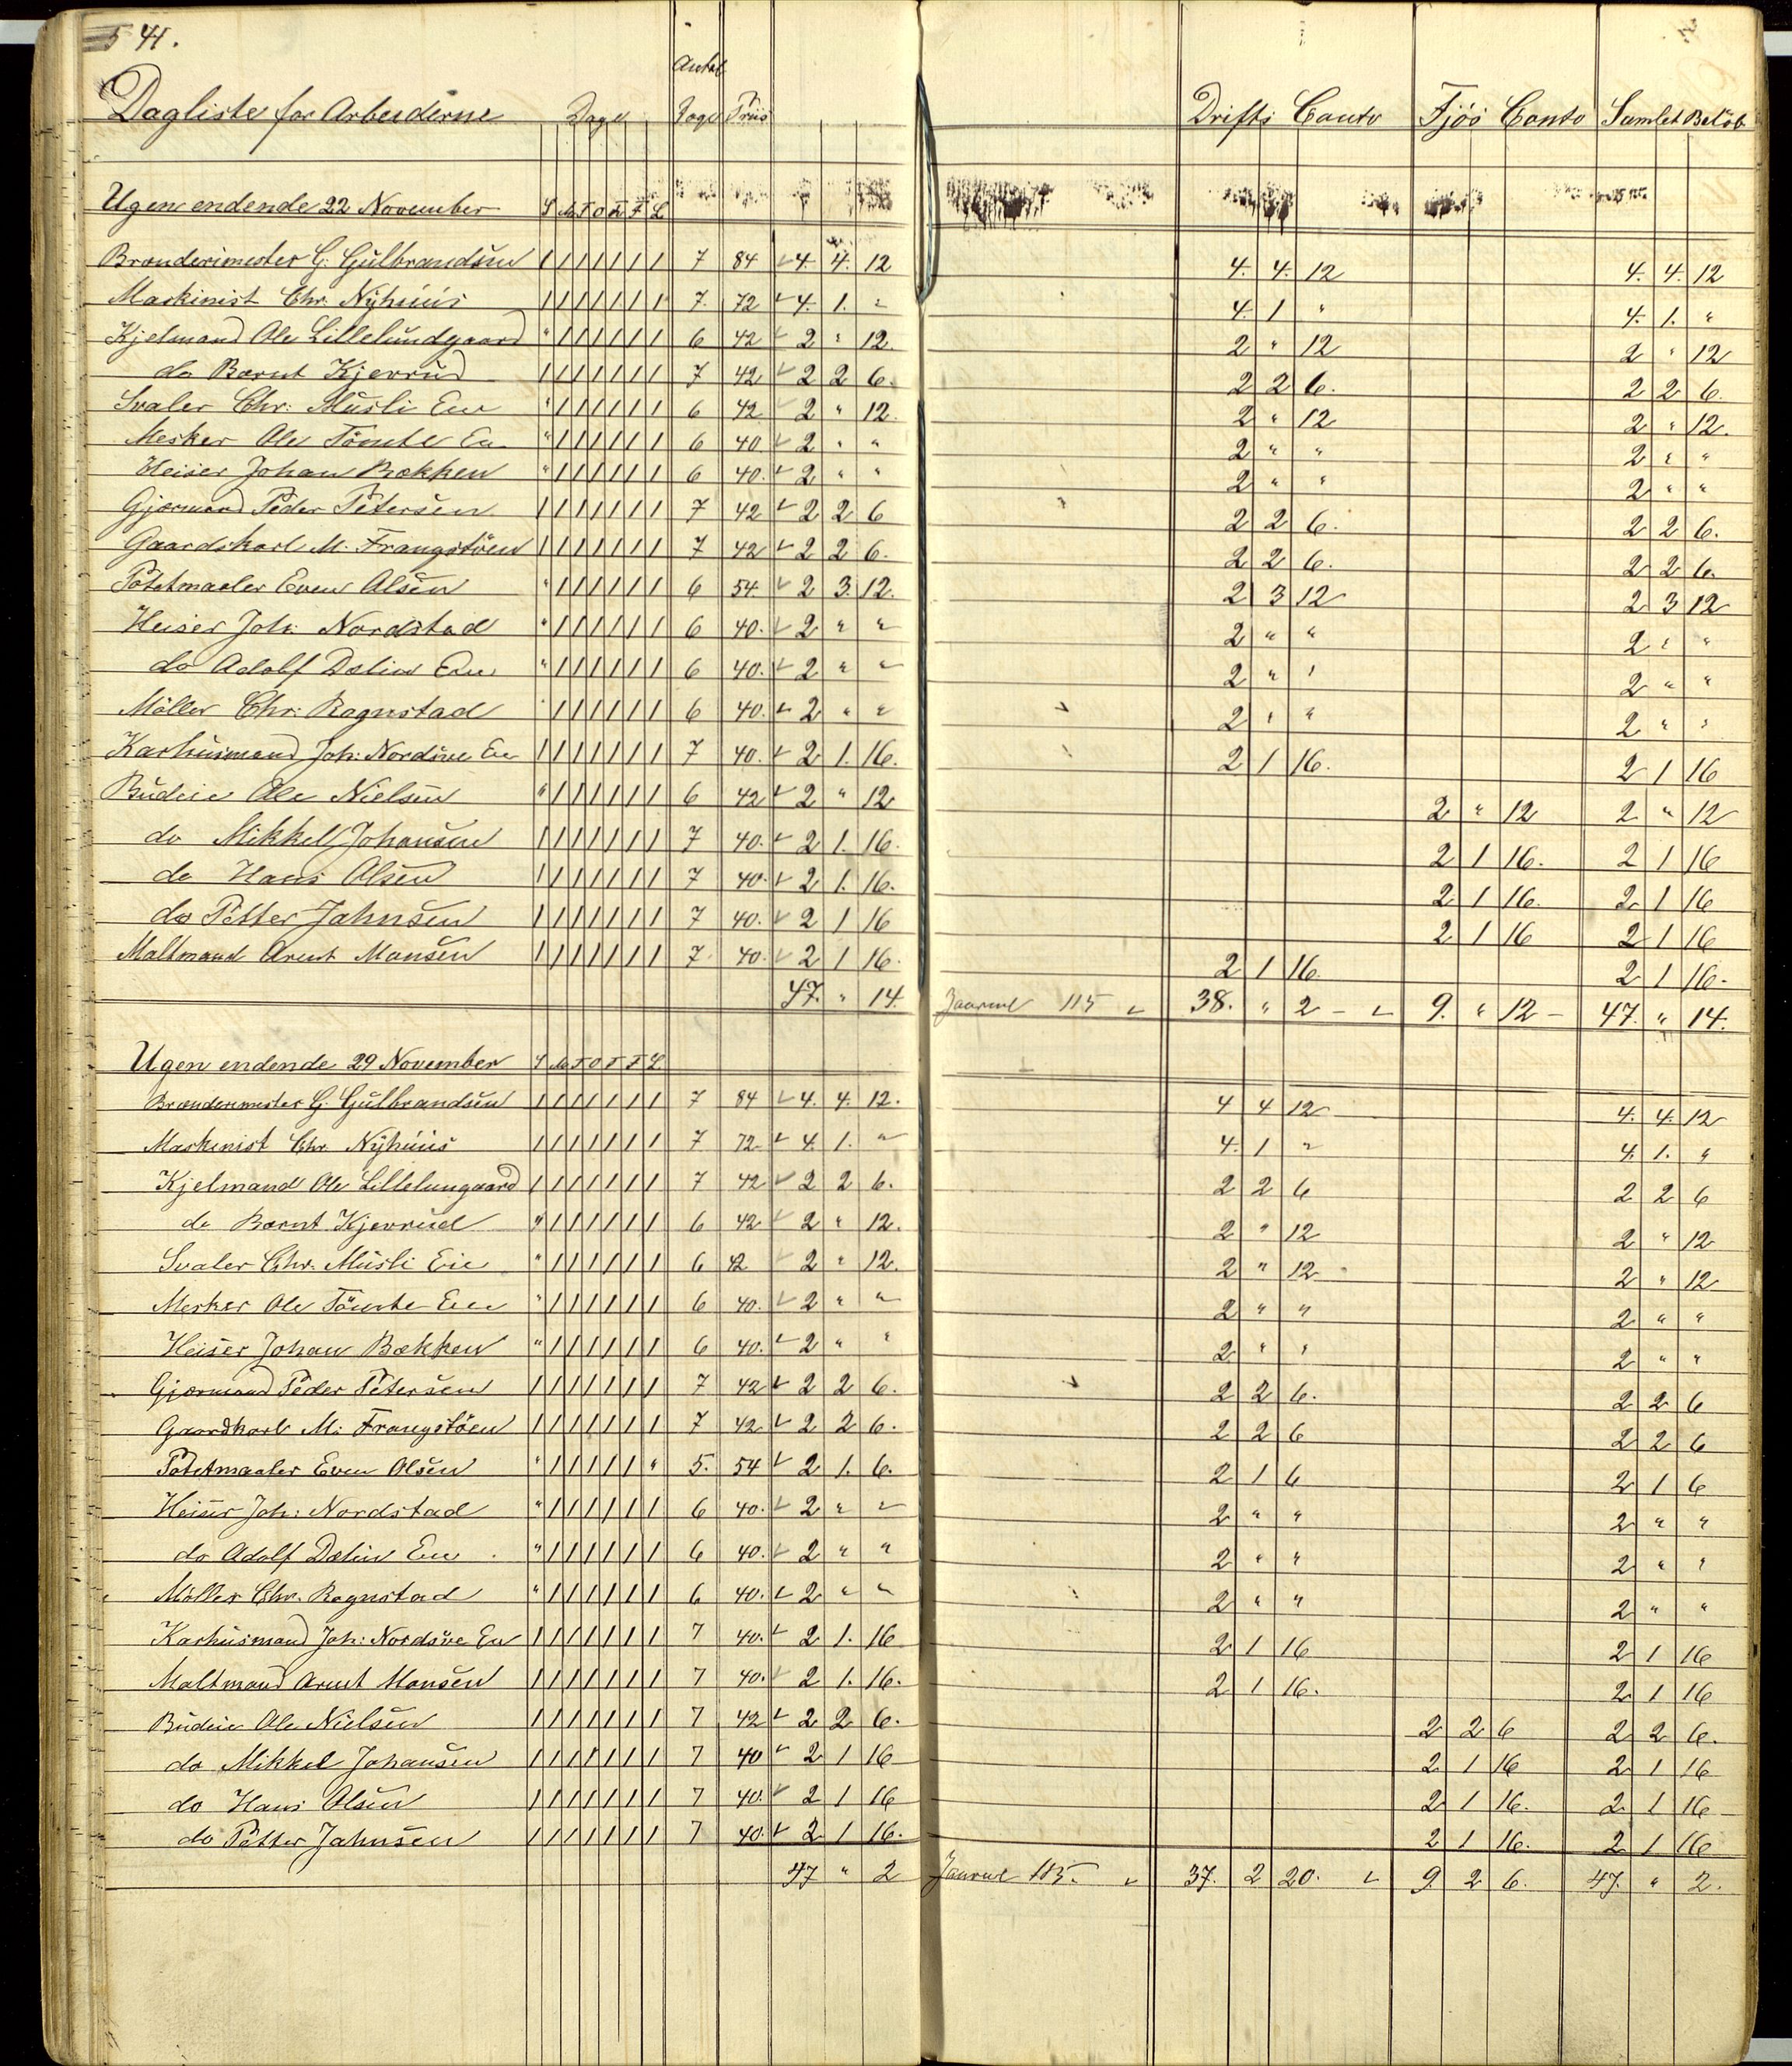 541.
Antal
Dagliste for Arbeiderne Dage Dage Priis Drifts Conto Fjös Conto Samlet Belöb
Ugen endende 22 November S M T O T F L
Brænderimester G. Gulbrandsen 1 1 1 1 1 1 1 7 84 4. 4. 12 4. 4. 12 4. 4. 12
Maskinist Chr. Nÿhuus 1 1 1 1 1 1 1 7. 72 4. 1. " 4 1 " 4. 1. "
Kjelmand Ole Lillelundgaard " 1 1 1 1 1 1 6 42 2 " 12. 2 " 12 2 " 12
do Barnt Kjevrud 1 1 1 1 1 1 1 7 42 2 2 6. 2 2 6. 2 2 6.
Svaler Chr: Musli Eie " 1 1 1 1 1 1 6 42 2 " 12. 2 " 12 2 " 12.
Mesker Ole Tömte Eie " 1 1 1 1 1 1 6 40. 2 " " 2 " " 2 " "
Heiser Johan Bækken " 1 1 1 1 1 1 6 40. 2 " " 2 " " 2 " "
Gjærmand Peder Petersen 1 1 1 1 1 1 1 7 42 2 2 6 2 2 6. 2 2 6.
Gaardskarl M. Frangstöen 1 1 1 1 1 1 1 7 42 2 2 6. 2 2 6. 2 2 6.
Potetmaaler Even Olsen " 1 1 1 1 1 1 6 54 2 3. 12. 2 3 12 2 3 12
Heiser Joh: Nordstad " 1 1 1 1 1 1 6 40. 2 " " 2 " " 2 " "
do Adolf Dælin Eie " 1 1 1 1 1 1 6 40. 2 " " 2 " " 2 " "
Möller Chr: Ragnstad " 1 1 1 1 1 1 6 40. 2 " " 2 " " 2 " "
Karhusmand Joh: Nordsve Eie 1 1 1 1 1 1 1 7 40. 2 1. 16. 2 1 16. 2 1 16
Budeie Ole Nielsen " 1 1 1 1 1 1 6 42 2 " 12 2 " 12 2 " 12
do Mikkel Johansen 1 1 1 1 1 1 1 7 40. 2 1. 16. 2 1 16. 2 1 16
do Hans Olsen 1 1 1 1 1 1 1 7 40. 2 1. 16. 2 1 16. 2 1 16
do Petter Jahnsen 1 1 1 1 1 1 1 7 40. 2 1 16 2 1 16 2 1 16
Maltmand Arent Monsen 1 1 1 1 1 1 1 7. 40. 2 1 16. 2 1 16. 2 1 16.
47. " 14. Journal 115 38. " 2 9. " 12 47. " 14.
Ugen endende 29 November S M T O T F L
Brænderimester G. Gulbrandsen 1 1 1 1 1 1 1 7 84 4. 4. 12. 4 4 12 4. 4. 12
Maskinist Chr. Nÿhuus 1 1 1 1 1 1 1 7 72 4. 1. " 4. 1 " 4. 1. "
Kjelmand Ole Lillelungaard 1 1 1 1 1 1 1 7 42 2 2 6. 2 2 6 2 2 6
do Barnt Kjevrud " 1 1 1 1 1 1 6 42 2 " 12. 2 " 12 2 " 12
Svaler Chr. Musli Eie " 1 1 1 1 1 1 6 42 2 " 12. 2 " 12 2 " 12
Mesker Ole Tömte Eie " 1 1 1 1 1 1 6 40. 2 " " 2 " " 2 " "
Heiser Johan Bækken " 1 1 1 1 1 1 6 40. 2 " " 2 " " 2 " "
Gjærmand Peder Petersen 1 1 1 1 1 1 1 7 42 2 2 6. 2 2 6. 2 2 6
Gaardkarl M: Frangstöen 1 1 1 1 1 1 1 7 42 2 2 6. 2 2 6 2 2 6
Potetmaaler Even Olsen " 1 1 1 1 1 " 5. 54 2 1. 6. 2 1 6 2 1 6
Heiser Joh: Nordstad " 1 1 1 1 1 1 6 40. 2 " " 2 " " 2 " "
do Adolf Dælin Eie " 1 1 1 1 1 1 6 40. 2 " " 2 " " 2 " "
Möller Chr. Ragnstad " 1 1 1 1 1 1 6 40. 2 " " 2 " " 2 " "
Karhusmand Joh: Nordsve Eie 1 1 1 1 1 1 1 7 40. 2 1. 16 2 1 16 2 1 16
Maltmand Arent Monsen 1 1 1 1 1 1 1 7 40. 2 1. 16. 2 1 16. 2 1 16
Budeie Ole Nielsen 1 1 1 1 1 1 1 7 42 2 2 6. 2 2 6 2 2 6.
do Mikkel Johansen 1 1 1 1 1 1 1 7 40 2 1 16 2 1 16 2 1 16
do Hans Olsen 1 1 1 1 1 1 1 7 40. 2 1 16 2 1 16. 2 1 16
do Petter Jahnsen 1 1 1 1 1 1 1 7 40. 2 1 16. 2 1 16. 2 1 16
47 " 2 Journal 115. 37. 2 20. 9. 2 6. 47. " 2.